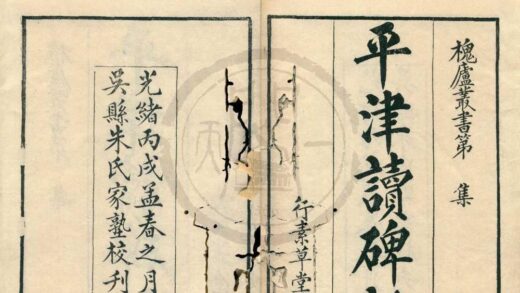 槐廬叢書第 集
平津讀碑
行素草堂
光緒丙戌孟春之月
吳縣朱氏家塾校刊